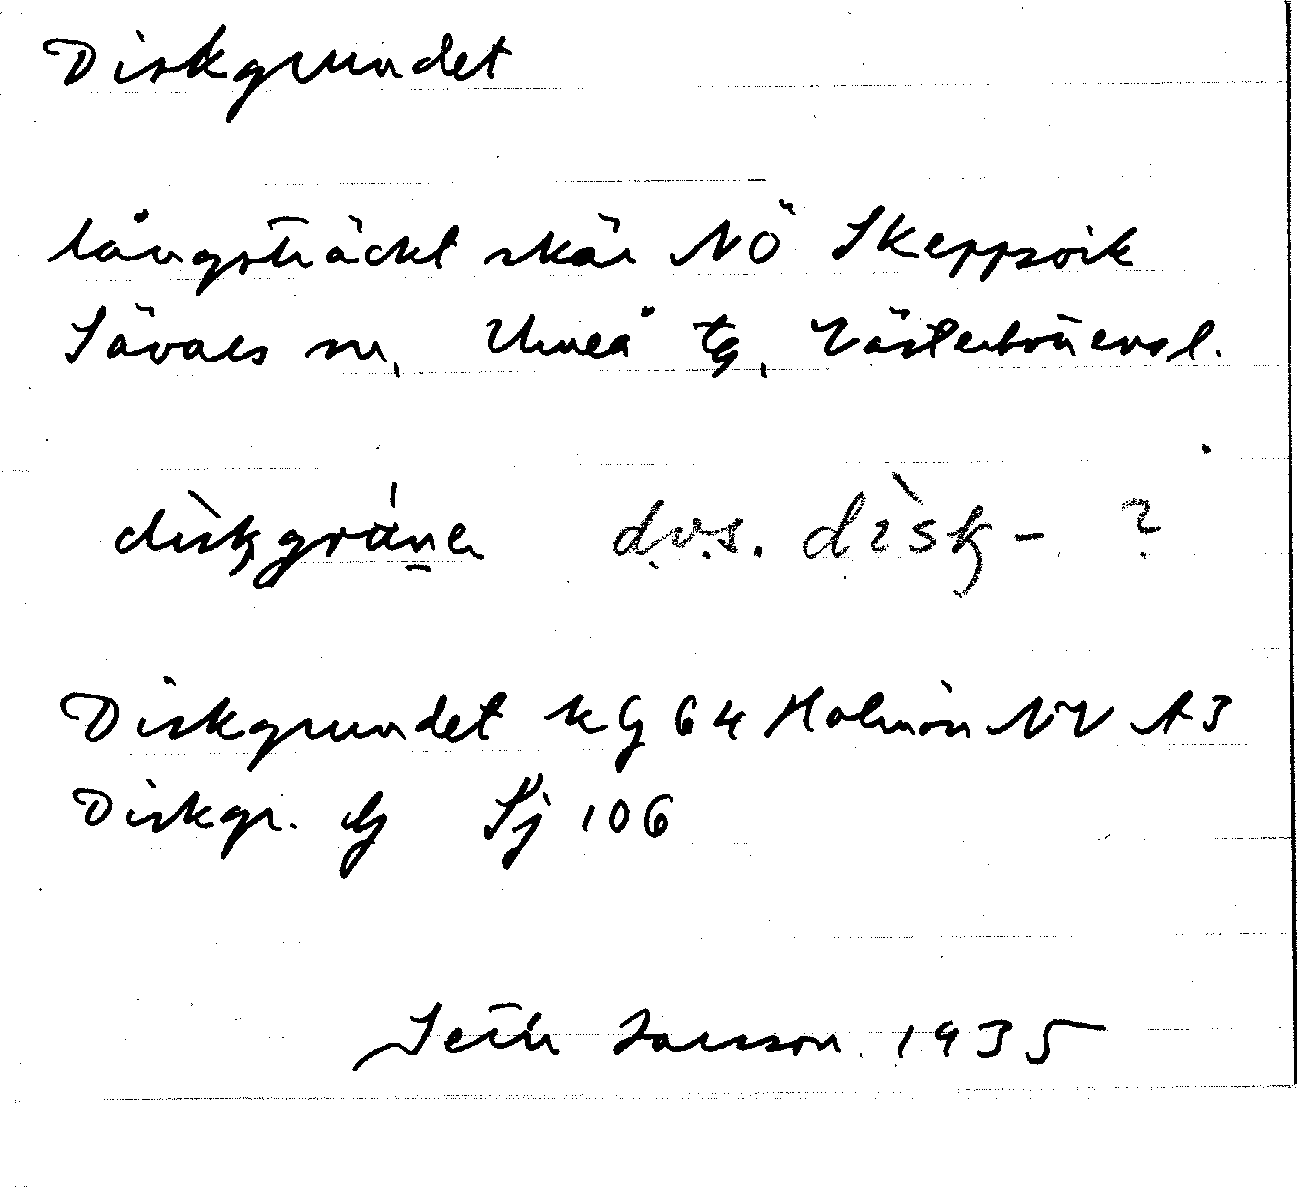 Diskgrundet
långsträckt skär NÖ Skeppsvik
Sävars sn, Umeå tg, Västerbottens l.
dìskgránen dvs. dìsk- ?
Diskgrundet kG 64 Holmön NV A3
Diskgr. G Sj 106
Seth Larsson 1935